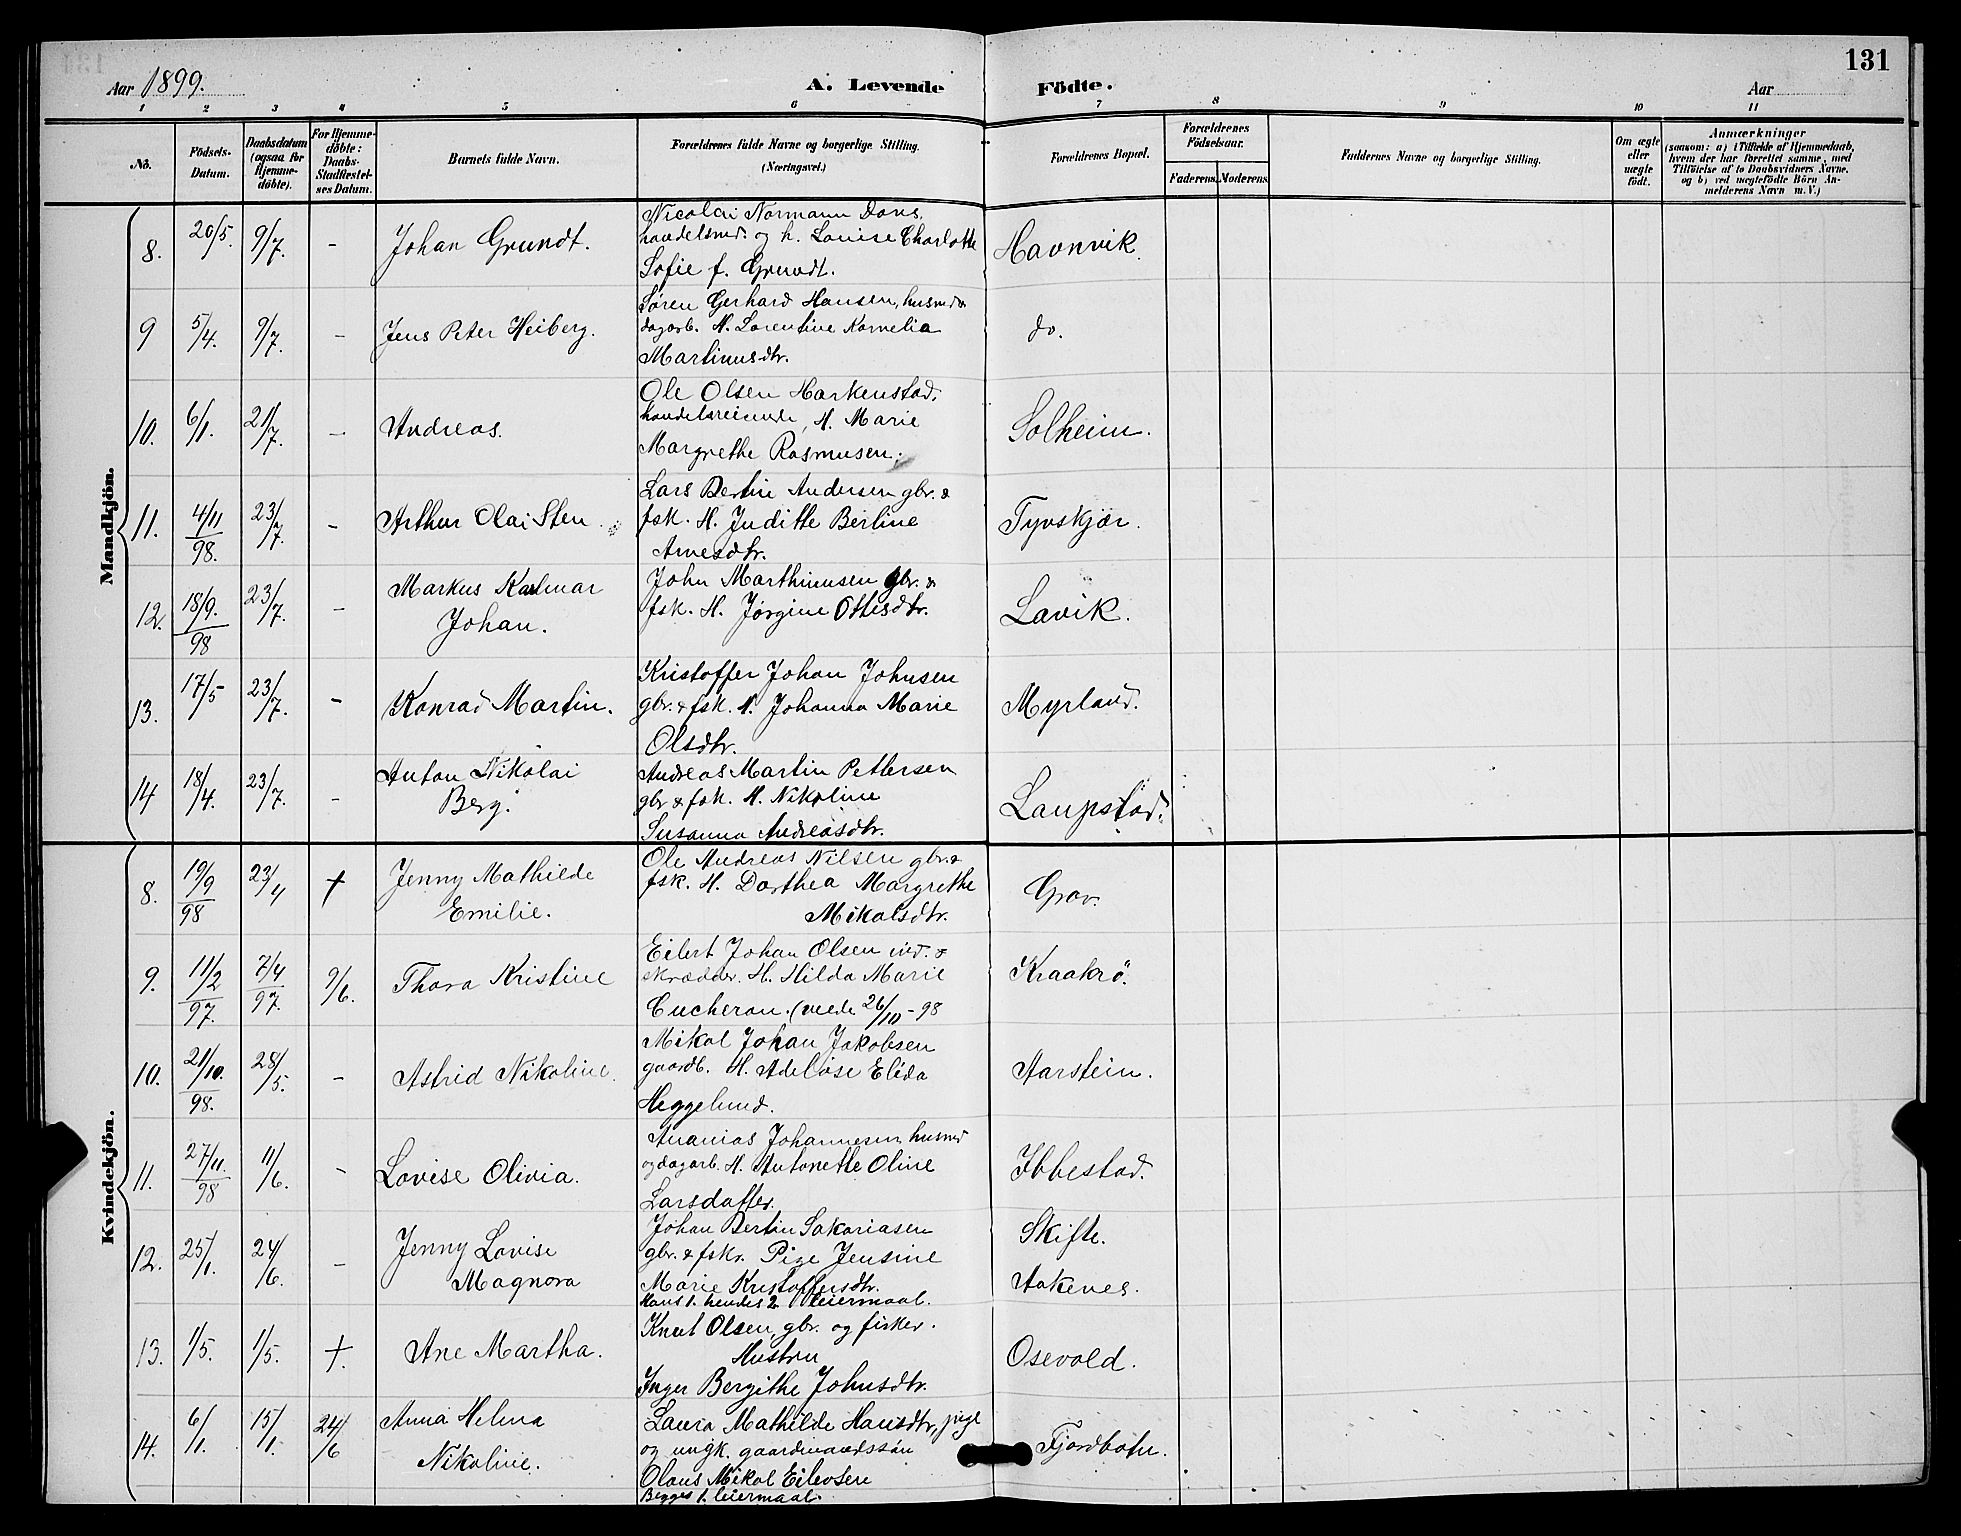 131
Aar 1899.
A. Levende Födte.
Aar
1 2 3 4 5 6 7 8 9 10 11
No.
Födsels-Datum.
Daabsdatum (ogsaa for Hjemme-döbte).
For Hjemme-döbte: Daabs-Stadfæstel-ses Datum.
Barnets fulde Navn.
Forældrenes fulde Navne og borgerlige Stilling. (Næringsvei.)
Forældrenes Bopæl.
Forældrenes Födselsaar.
Faderens. Moderens.
Faddernes Navne og borgerlige Stilling.
Om ægte eller uægte födt.
Anmærkninger
(saasom: a) i Tilfælde af Hjemmedaab, hvem der har forrettet samme, med Tilföielse af to Daabsvidners Navne, og b) ved uægtefödte Börn An-melderens Navn m. V.)
Mandkjön.
8. 20/5. 9/7. - Johan Grundt.
Nicolai Normann Dons,
handelsmd. og h. Louise Charlotte
Sofie f. Grundt.
Havnvik.
9 5/4. 9/7. - Jens Peter Heiberg.
Søren Gerhard Hansen, husmd &
dagarb. H. Lorentine Kornelia
Martinusdtr.
do.
10. 6/1. 21/7. - Andreas.
Ole Olsen Harkenstad,
handelsreisende, H. Marie
Margrethe Rasmusen.
Solheim.
11. 4/11 98. 23/7. - Arthur Olai Sten
Lars Bertin Andersen gbr. &
fsk. H. Juditte Berline
Arnesdtr.
Tyvskjær.
12. 18/9. 98 23/7. - Markus Kalmar
Johan.
John Marthinusen gbr. &
fsk. H. Jørgine Ottesdtr.
Lavik.
13. 17/5 23/7. - Konrad Martin.
Kristoffer Johan Johnsen
gbr. & fsk. H. Johanna Marie
Olsdtr.
Myrland.
14 18/4. 23/7. - Anton Nikolai
Berg.
Andreas Martin Pettersen
gbr & fsk. H. Nikoline
Susanna Andreasdtr.
Laupstad.
Kvindekjön.
8. 19/9 98 23/4 † Jenny Mathilde
Emilie.
Ole Andreas Nilsen gbr. &
fsk. H. Dorthea Margrethe
Mikalsdtr.
Grov.
9. 11/2 97. 7/4 97. 9/6. Thora Kristine
Eilert Johan Olsen ind. &
skrædder. H. Hilda Marie
Cucheron. (viede 26/10 - 98
Kraakrö.
10. 21/10. 98. 28/5. - Astrid Nikoline.
Mikal Johan Jakobsen
gaardb. H. Adelöse Elida
Heggelund.
Aarstein.
11. 27/11. 98 11/6. - Lovise Olivia.
Ananias Johannesen husmd
og dagarb. H. Antonette Oline
Larsdatter.
Ibbestad.
12. 25/1. 24/6. - Jenny Lovise
Magnora
Johan Bertin Sakariasen
gbr. & fskr. Pige Jensine
Marie Kristoffersdtr.
Hans 1. hendes 2 leiermaal.
Skifte.
Aakenes.
13. 1/5. 1/5. †. Ane Martha.
Knut Olsen, gbr. og fisker.
Hustru
Inger Bergithe Johnsdtr.
Osevold.
14. 6/1. 15/1. 24/6 Anna Helma
Nikoline.
Laura Mathilde Hansdtr, pige
og ungk. gaardmandssön
Olaus Mikal Eilevsen
Begges 1. leiermaal.
Fjordbotn.